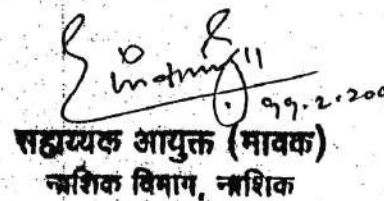 ११.२.२००
सहाय्यक आयुक्त (मावक)
नाशिक विभाग, नाशिक